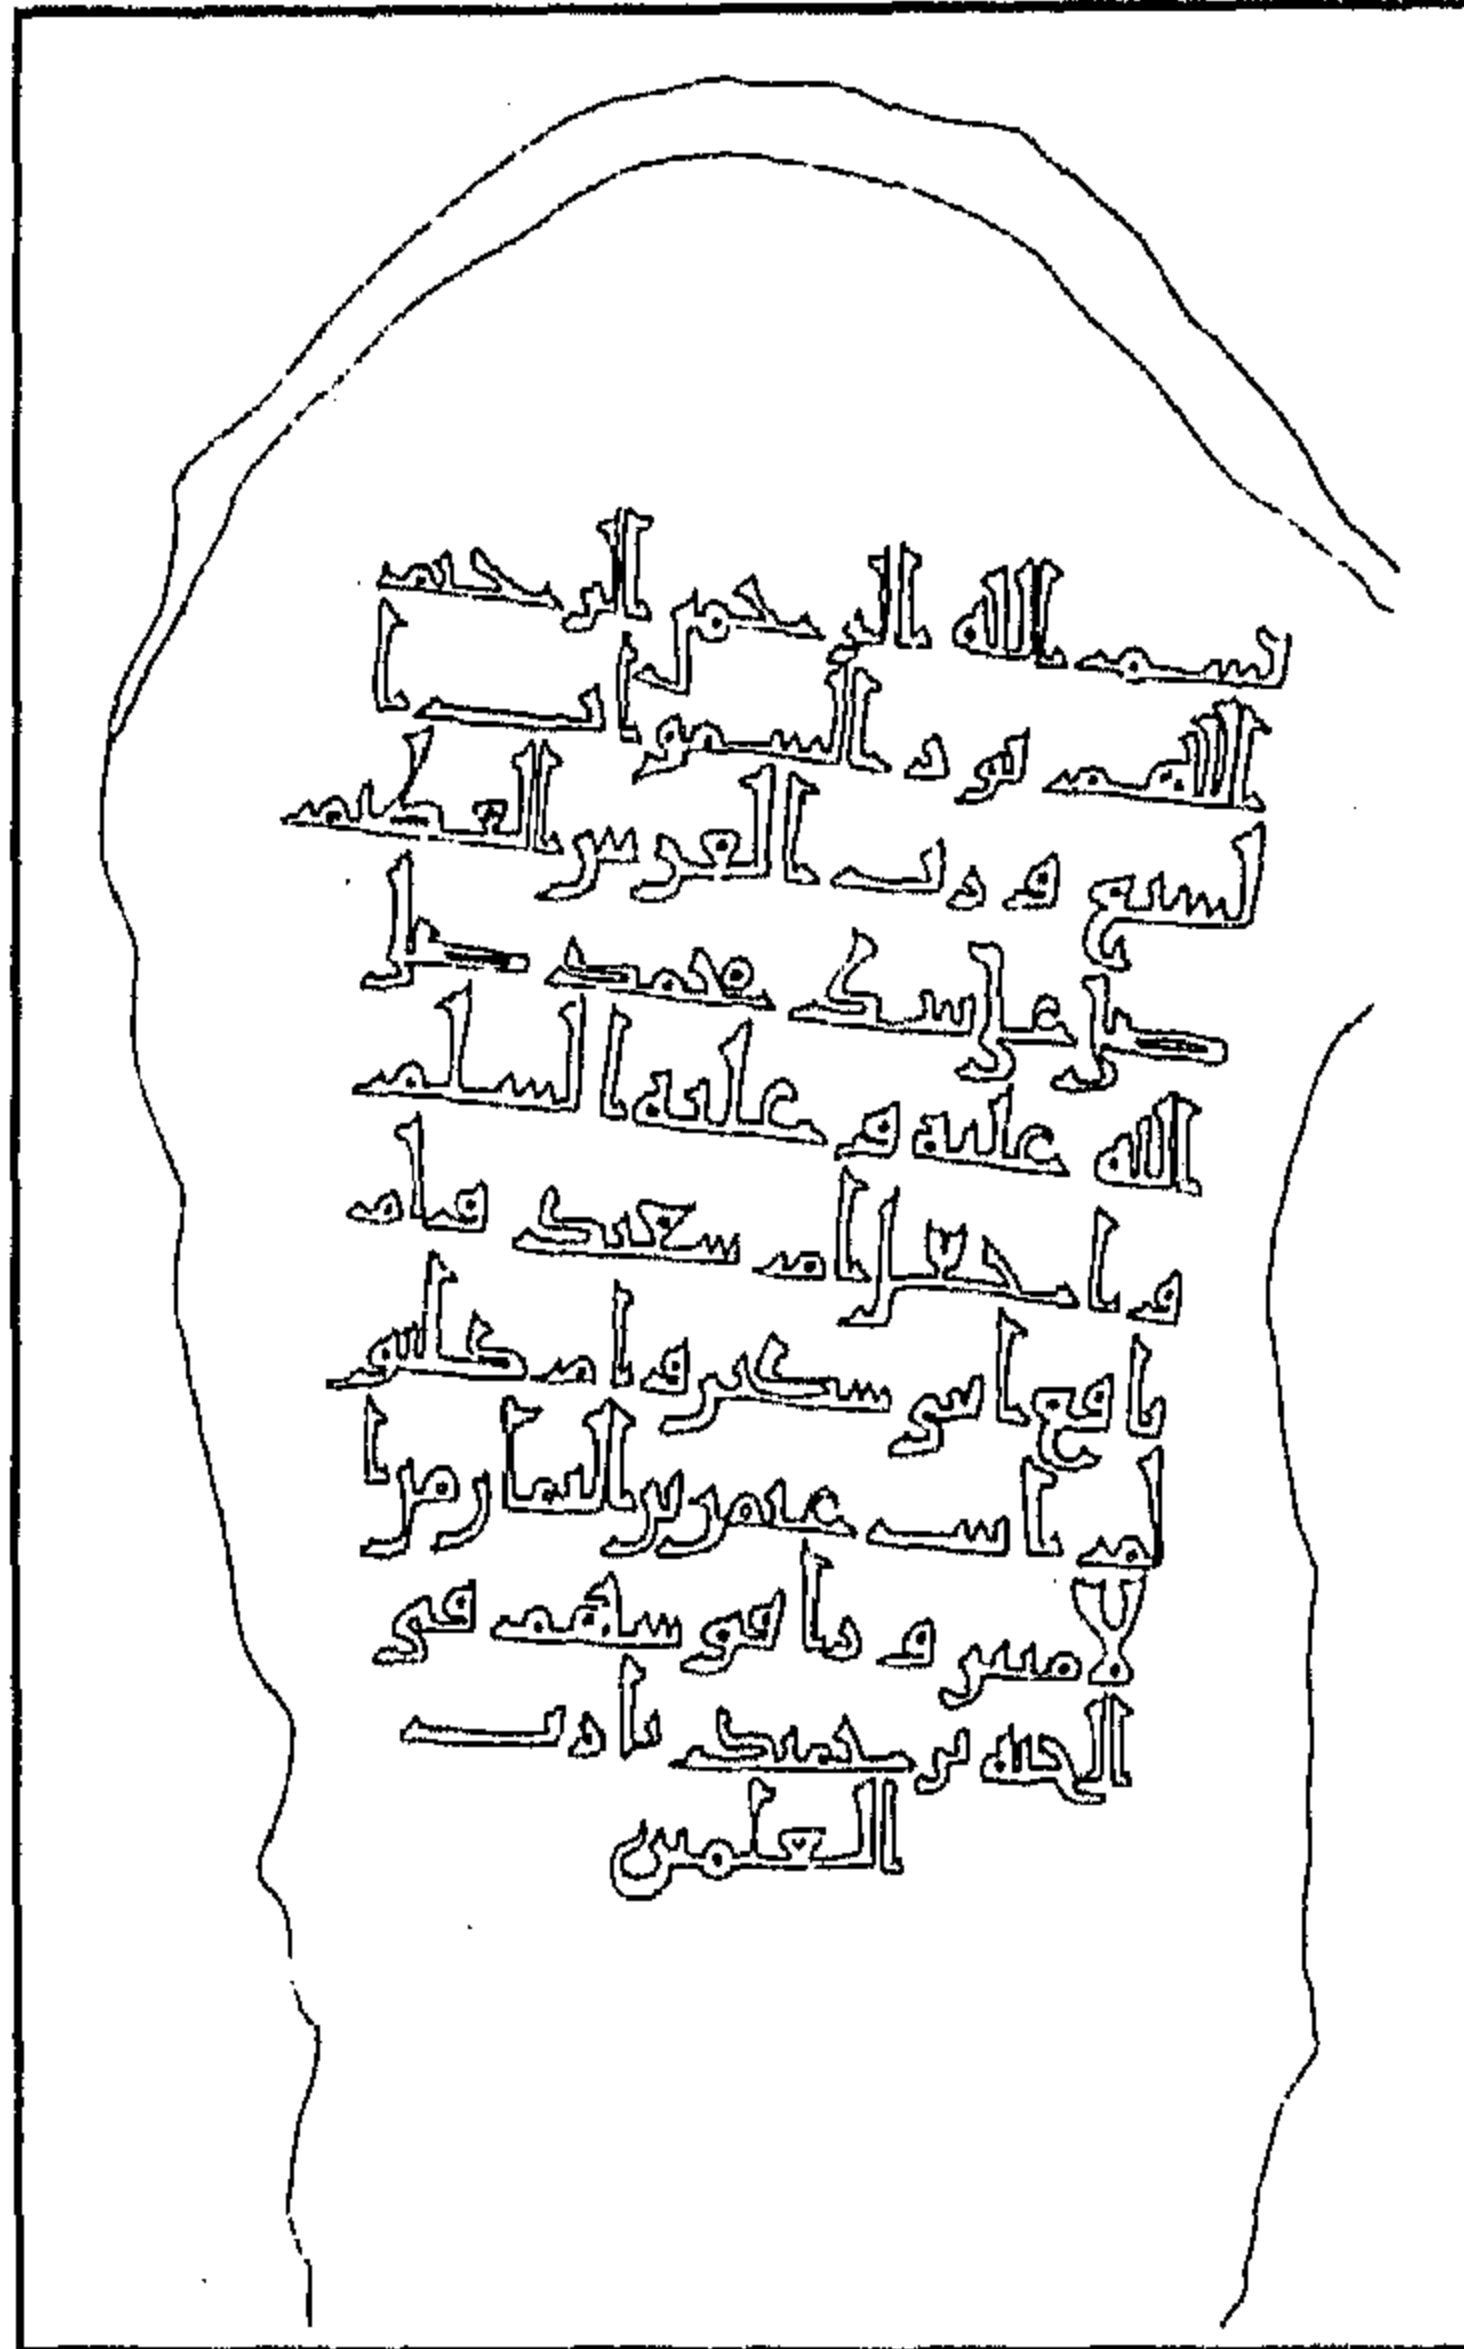 بسم الله الرحمن الرحيم
اللهم نور السموات ا
لسبع و رب العرش العظيم
صلي على نبيك محمد صلى
الله عليه و عليه السلم
و احشر ام سعيد وام
نافع ابنتي وام كلثو
م ابنت عمرو بن من ا
لامنين و رافق بينهم في
الجنه برحمتك يا رب
العلمين